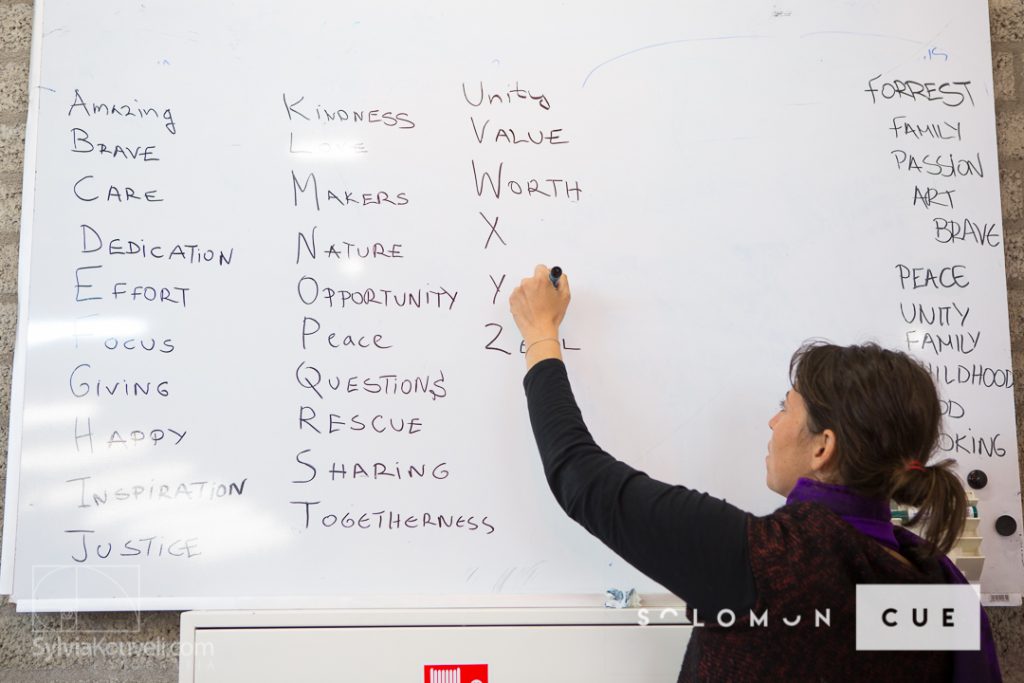 Amazing
BRAVE
CARE
DEDICATION
EFFORT
FOCUS
GIVING
HAPPY
INSPIRATION
JUSTICE
KINDNESS
LOVE
MAKERS
NATURE
OPPORTUNITY
Peace
QUESTIONS
RESCUE
SHARING
TOGETHERNESS
Unity
VALUE
WORTH
X
Y
ZEAL
FORREST
FAMILY
PASSION
ART
BRAVE
PEACE
UNITY
FAMILY
CHILDHOOD
OKING
SOLOMON CUE
SylviaKouveli.com